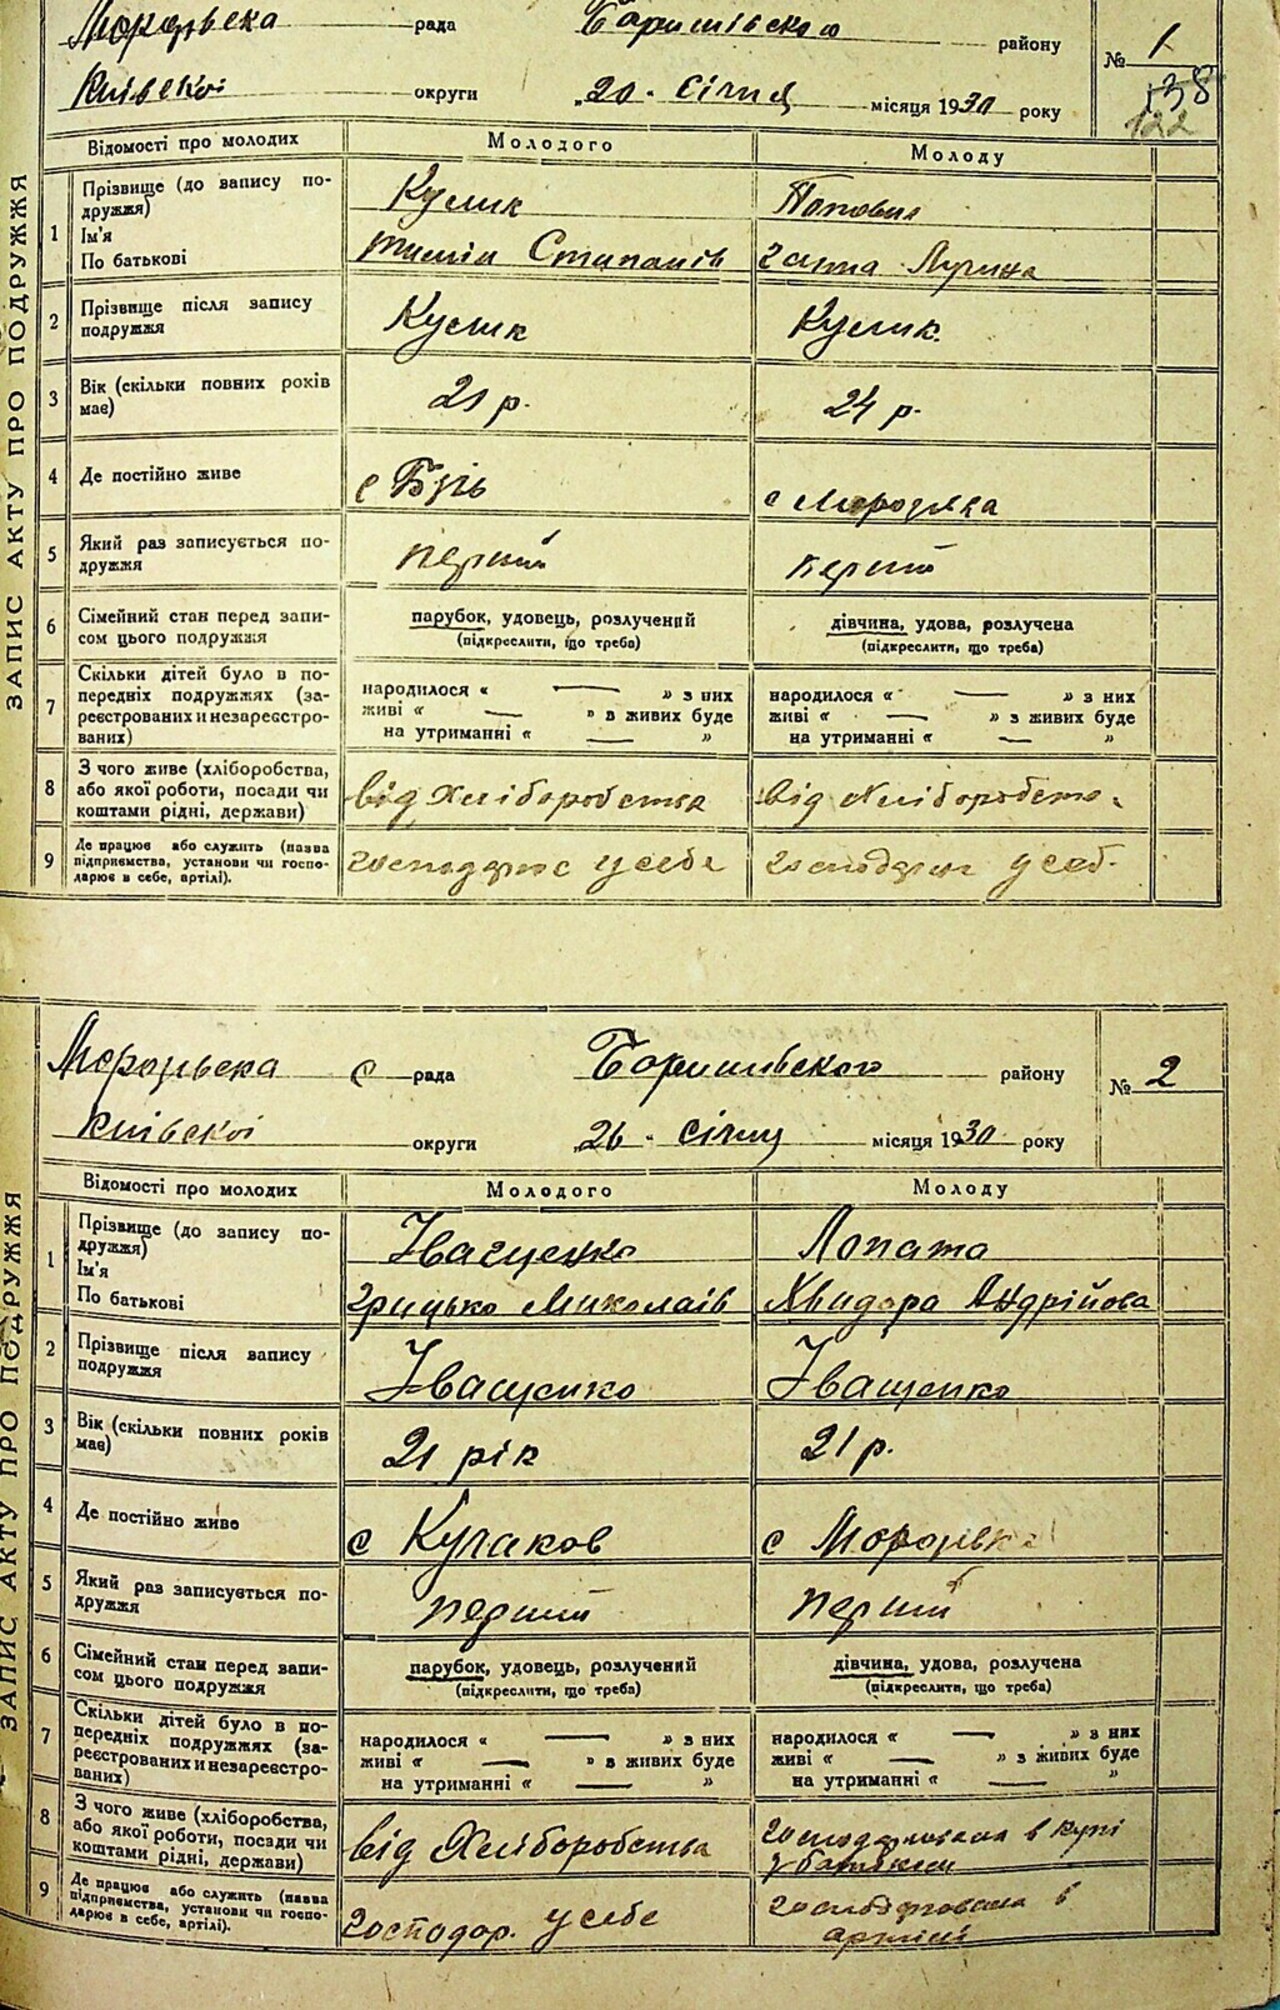 рада Баришівського району № 1
138
122
Київскоі округи „20" січня місяця 1930 року
ЗАПИС АКТУ ПРО ПОДРУЖЖЯ
Відомості про молодих Молодого Молоду
1 Прізвище (до запису по-
дружжя)
Ім'я
По батькові
Кулик
Степанів
2 Прізвище після запису
подружжя
Кулик Кулик.
3 Вік (скільки повних років
має)
21 р. 24 р.
4 Де постійно живе
с
с
5 Який раз записується по-
дружжя
перший перший
6 Сімейний стан перед запи-
сом цього подружжя
парубок, удовець, розлучений дівчина, удова, розлучена
(підкреслити, що треба) (підкреслити, що треба)
7 Скільки дітей було в по-
передніх подружжях (за-
реєстрованих и незареєстро-
ваних)
народилося « — » з них народилося « — » з них
живі « — » в живих буде живі « — » з живих буде
на утриманні « — » на утриманні « — »
8 З чого живе (хліборобства,
або якої роботи, посади чи
коштами рідні, держави)
від Хліборобства від Хліборобств.
9 Де працює або служить (назва
підприємства, установи чи госпо-
дарює в себе, артілі).
господарює у себе у себ.
с рада Баришівського району № 2
Київскоі округи „26" січня місяця 1930 року
ЗАПИС АКТУ ПРО ПОДРУЖЖЯ
Відомості про молодих Молодого Молоду
1 Прізвище (до запису по-
дружжя)
Ім'я
По батькові
Іващенко Лопата
Грицько Миколаів Хвидора Андрійова
2 Прізвище після запису
подружжя
Іващенко Іващенко
3 Вік (скільки повних років
має)
21 рік 21 р.
4 Де постійно живе
с Кучаков с
5 Який раз записується по-
дружжя
перший перший
6 Сімейний стан перед запи-
сом цього подружжя
парубок, удовець, розлучений дівчина, удова, розлучена
(підкреслити, що треба) (підкреслити, що треба)
7 Скільки дітей було в по-
передніх подружжях (за-
реєстрованих и незареєстро-
ваних)
народилося « — » з них народилося « — » з них
живі « — » в живих буде живі « — » з живих буде
на утриманні « — » на утриманні « — »
8 З чого живе (хліборобства,
або якої роботи, посади чи
коштами рідні, держави)
від Хліборобства
господарювала в купі
з батьками
9 Де працює або служить (назва
підприємства, установи чи госпо-
дарює в себе, артілі).
господар. у себе
господарювала в
артілі